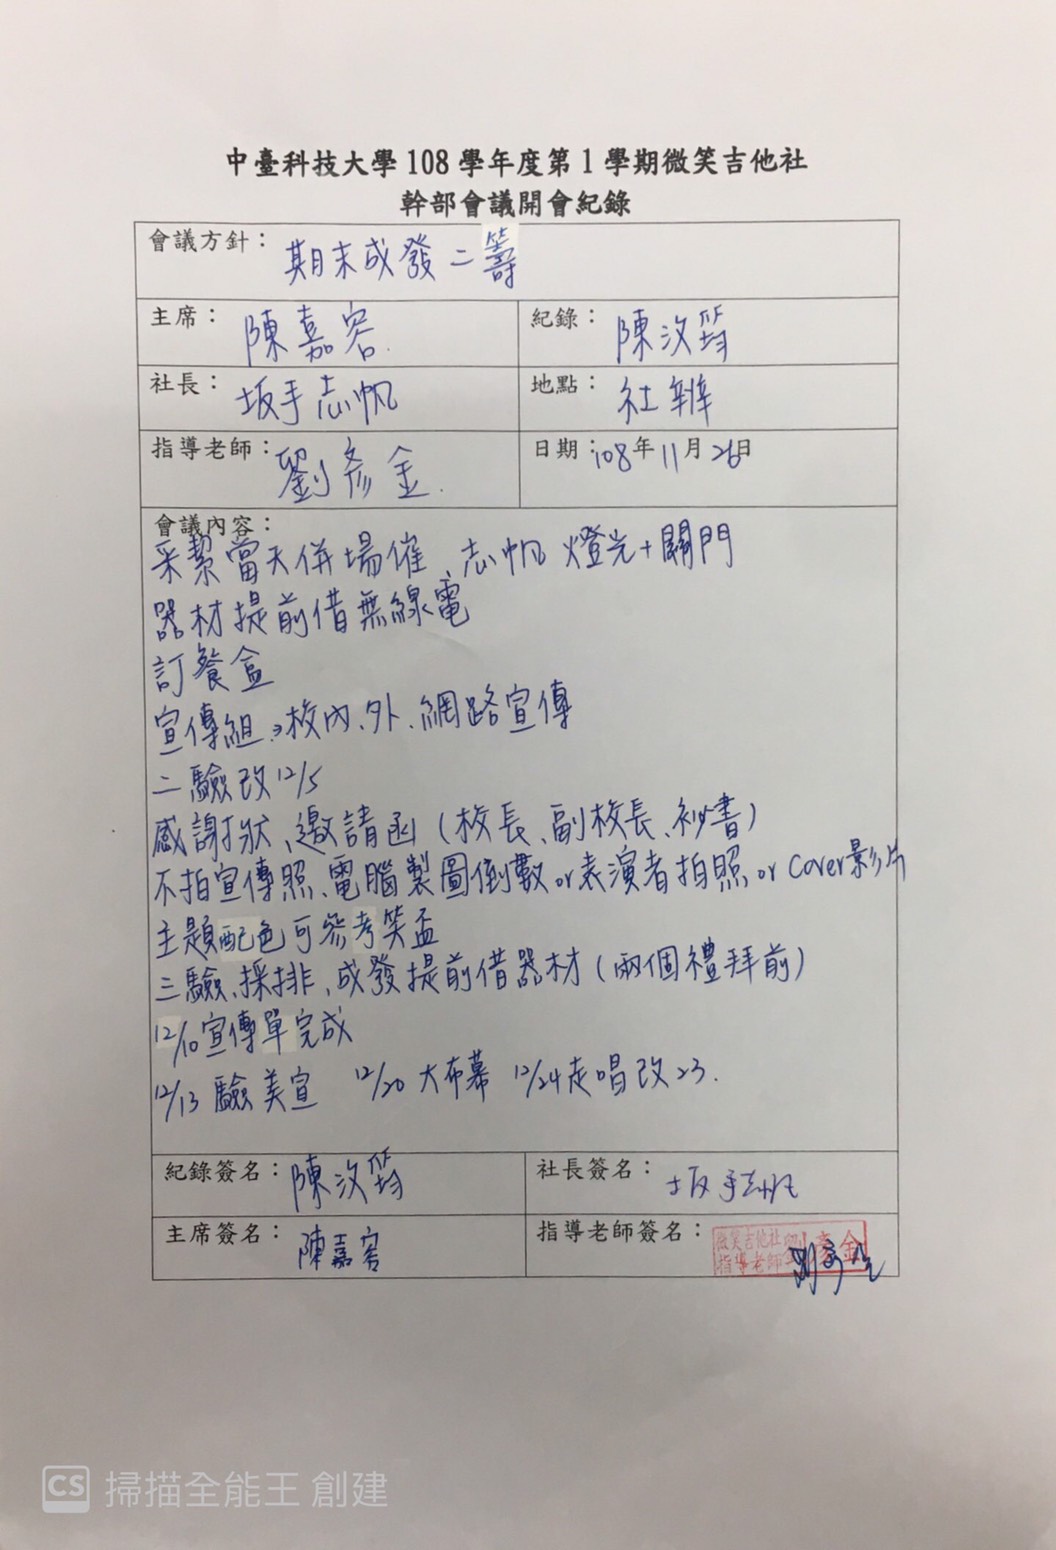 中臺科技大學 108 學年度第 1 學期微笑吉他社
幹部會議開會紀錄
會議方針： 期末成發二籌
主席： 陳嘉容 紀錄： 陳汶筠
社長： 坂手志帆 地點： 社辦
指導老師： 劉彥金 日期：108年11月26日
會議內容：
采絜當天併場催、志帆 燈光+關門
器材提前借無線電
訂餐盒
宣傳組→校內、外、網路宣傳
二驗改12/5
感謝狀、邀請函(校長、副校長、秘書)
不拍宣傳照、電腦製圖倒數or表演者拍照 or cover影片
主題配色可參考笑盃
三驗、採排、成發提前借器材(兩個禮拜前)
12/10宣傳單完成
12/13 驗美宣 12/20 大布幕 12/24走唱改23.
紀錄簽名： 陳汶筠 社長簽名： 坂手志帆
主席簽名： 陳嘉容 指導老師簽名： 微笑吉他社
指導老師 劉彥金
CS 掃描全能王 創建